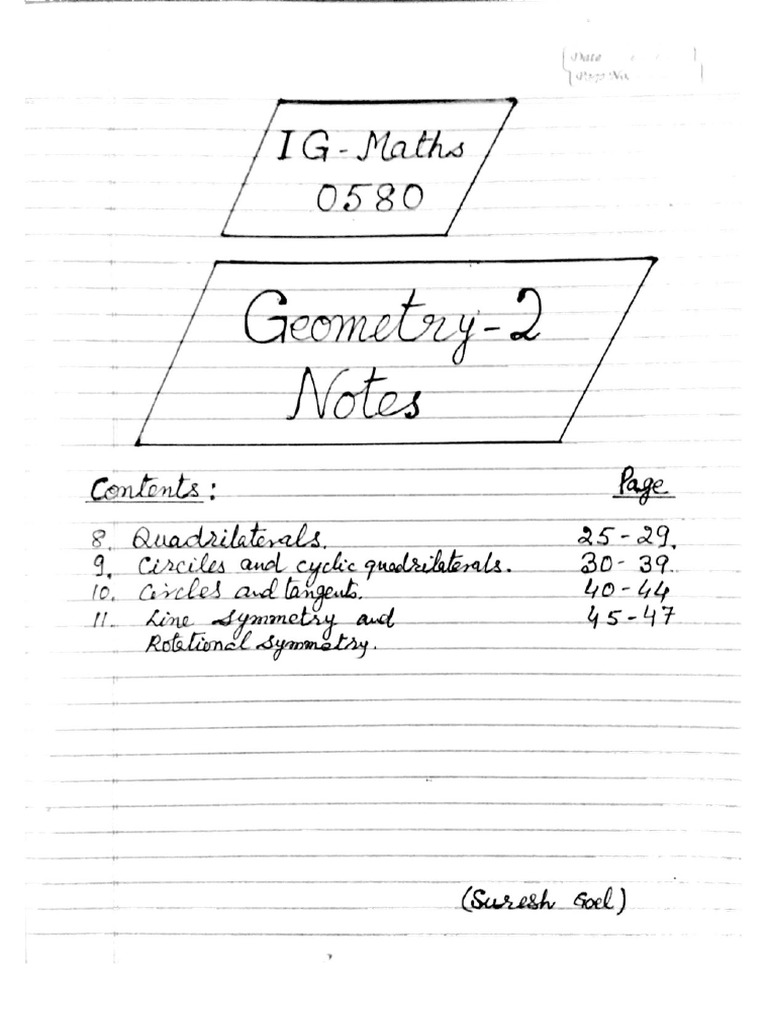 Date
Page No.
IG - Maths
0580
Geometry - 2
Notes
Contents : Page
8. Quadrilaterals. 25 - 29.
9. Circiles and cyclic quadrilaterals. 30 - 39.
10. Circles and tangents. 40 - 44
11. Line symmetry and 45 - 47
Rotational symmetry.
(Suresh Goel)